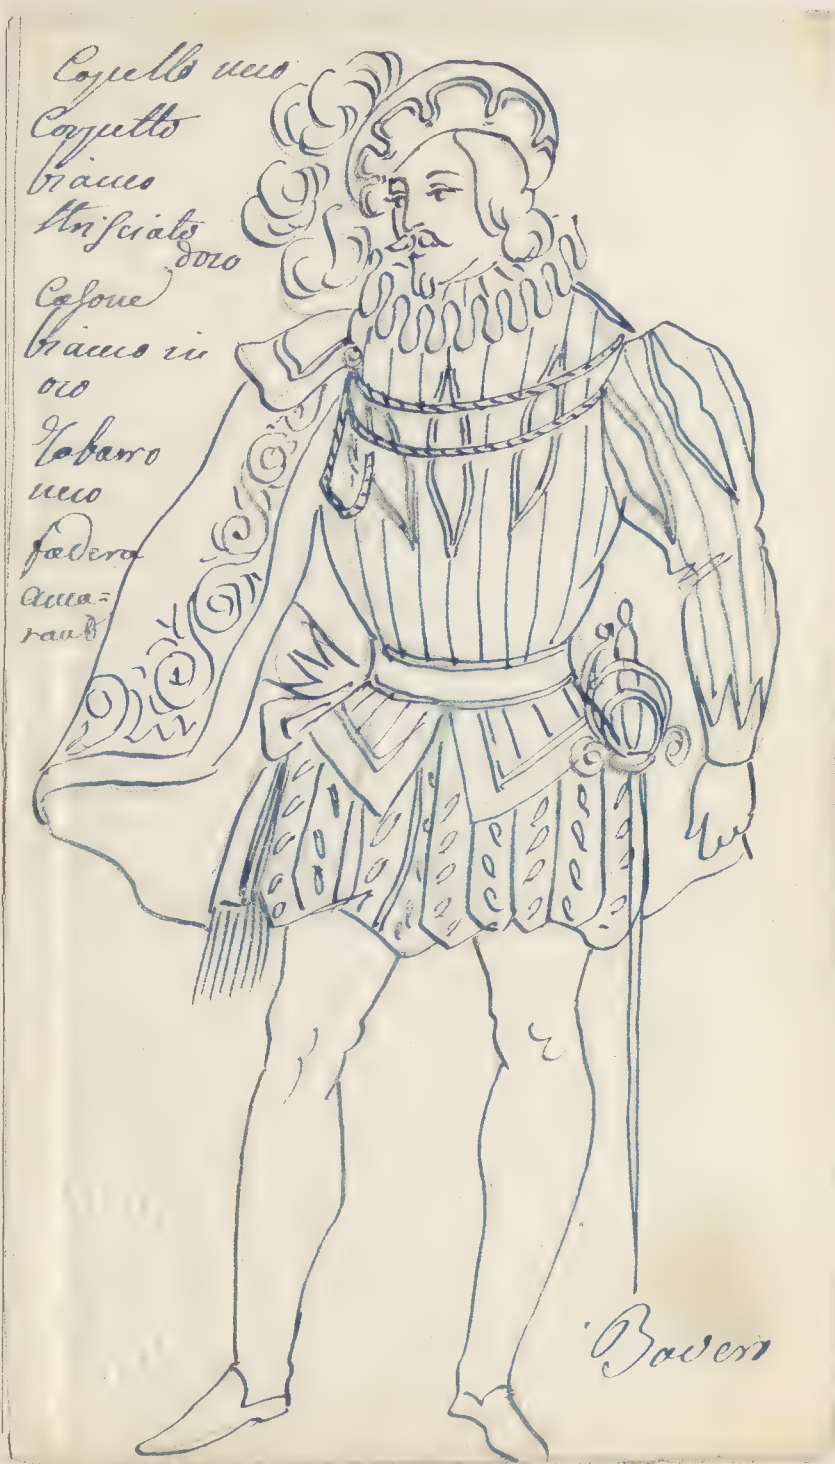 Capello nero
Corpetto
bianco
striſciato
d'oro
Calzone
bianco in
oro
Tabarro
nero
fodera
ama=
rant
Baverr